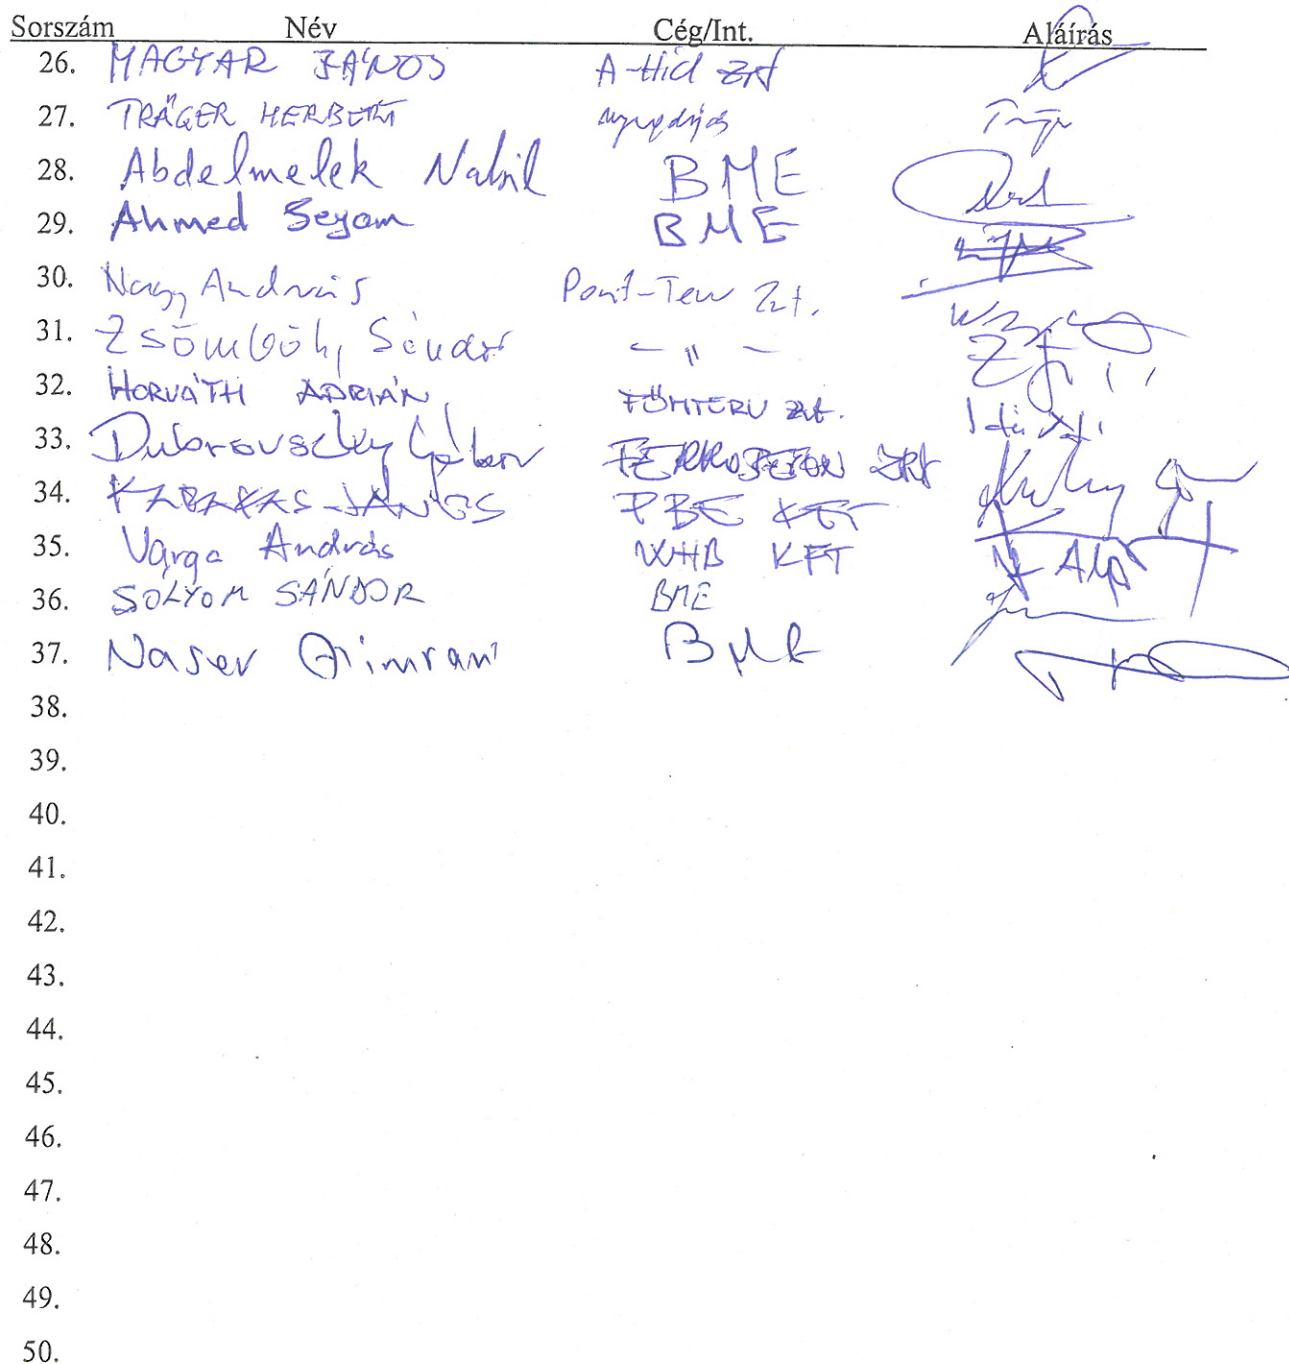 Sorszám Név Cég/Int. Aláírás
26. MAGYAR JÁNOS A-Híd Zrt
27. TRÄGER HERBERT nyugdíjas
28. Abdelmelek Nabil BME
29. Ahmed Seyam BME
30. Nagy András Pont-Terv Zrt.
31. Zsömböly Sándor - " -
32. HORVÁTH ADRIÁN FŐMTERV Zrt.
33. Dubrovszky Gábor FERROBETON ZRt
34. JÁNOS PBE KFT
35. Varga András WHB KFT
36. SÓLYOM SÁNDOR BME
37. Naser BME
38.
39.
40.
41.
42.
43.
44.
45.
46.
47.
48.
49.
50.